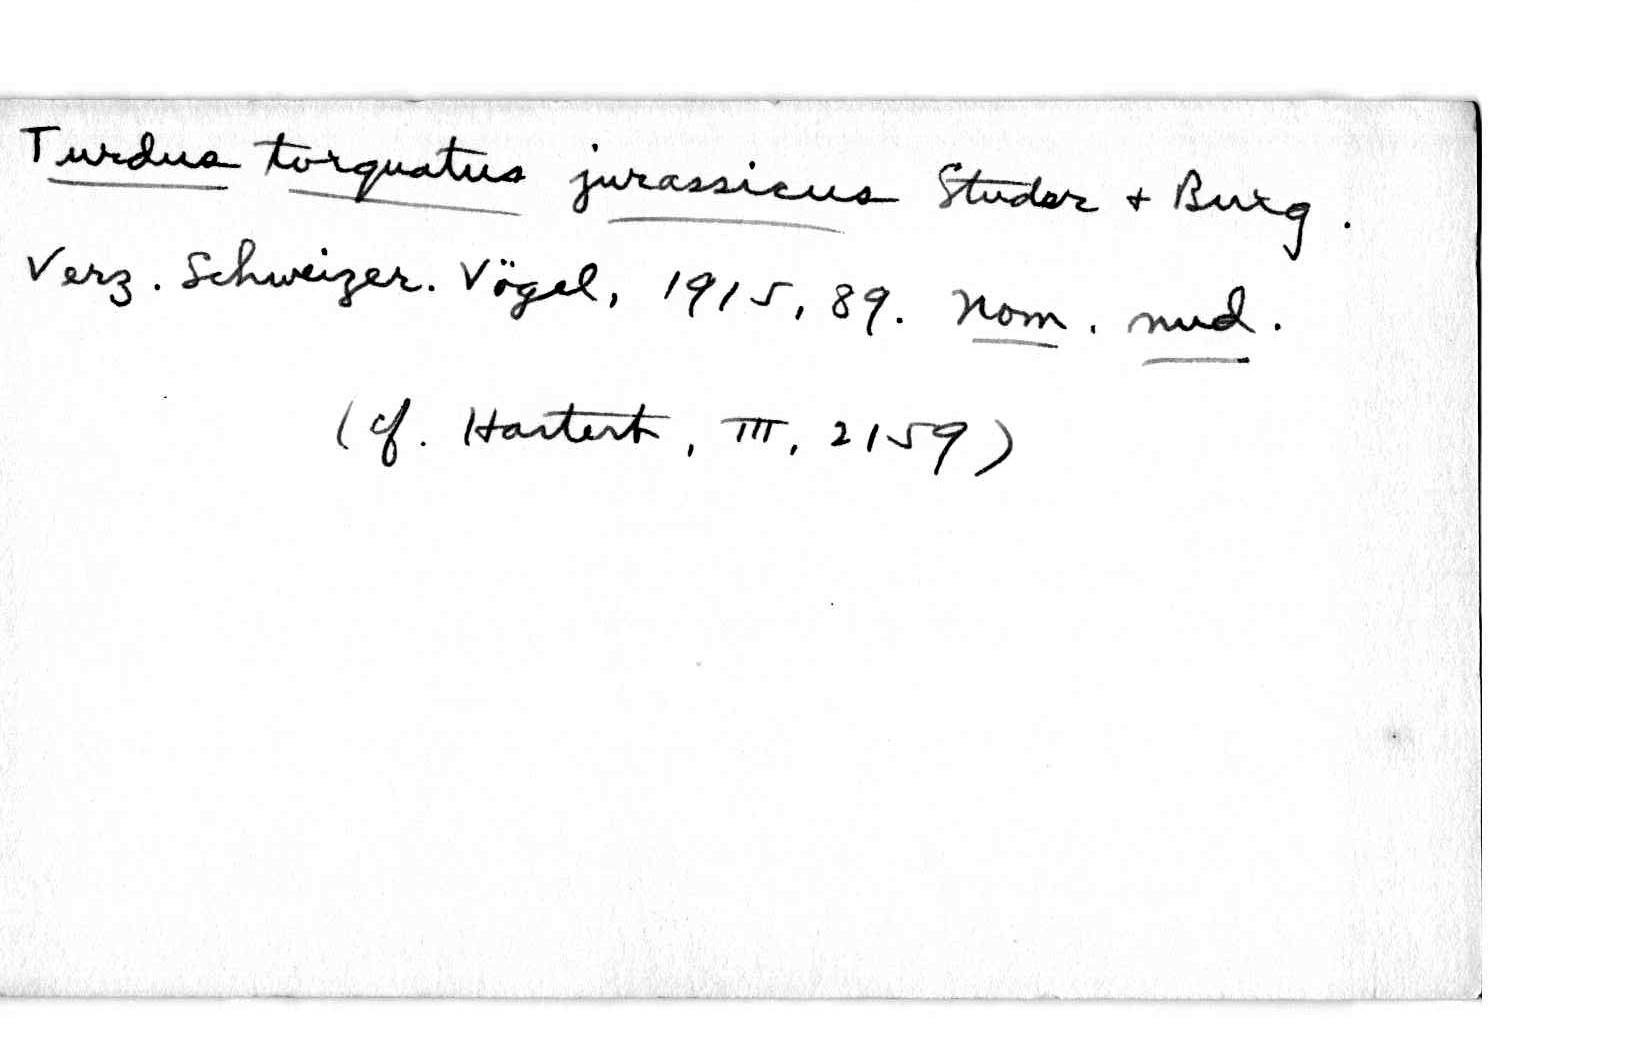 Turdus torquatus jurassicus Studer + Burg.
Verz. Schweizer. Vögel, 1915, 89. Nom. nud.
(cf. Hartert, III, 2159)